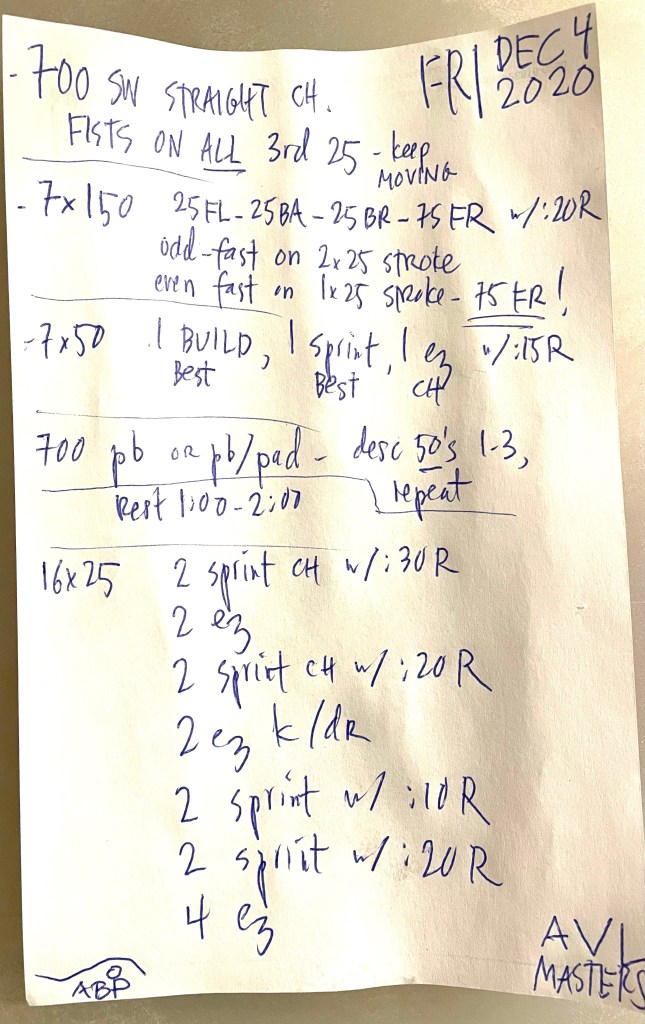 FRI DEC 4
2020
-700 SW STRAIGHT CH.
FISTS ON ALL 3rd 25 - keep
MOVING
-7x150 25FL-25BA-25BR-75FR w/:20R
odd-fast on 2x25 stroke
even fast on 1x25 stroke-75FR!
-7x50 1 BUILD, 1 sprint, 1 ez w/:15R
Best Best CH
700 pb OR pb/pad - desc 50's 1-3,
repeat
Rest 1:00-2:00
16x25 2 sprint CH w/:30R
2 ez
2 sprint CH w/:20R
2 ez k/dR
2 sprint w/:10R
2 sprint w/:20R
4 ez
ABP
AVL
MASTERS